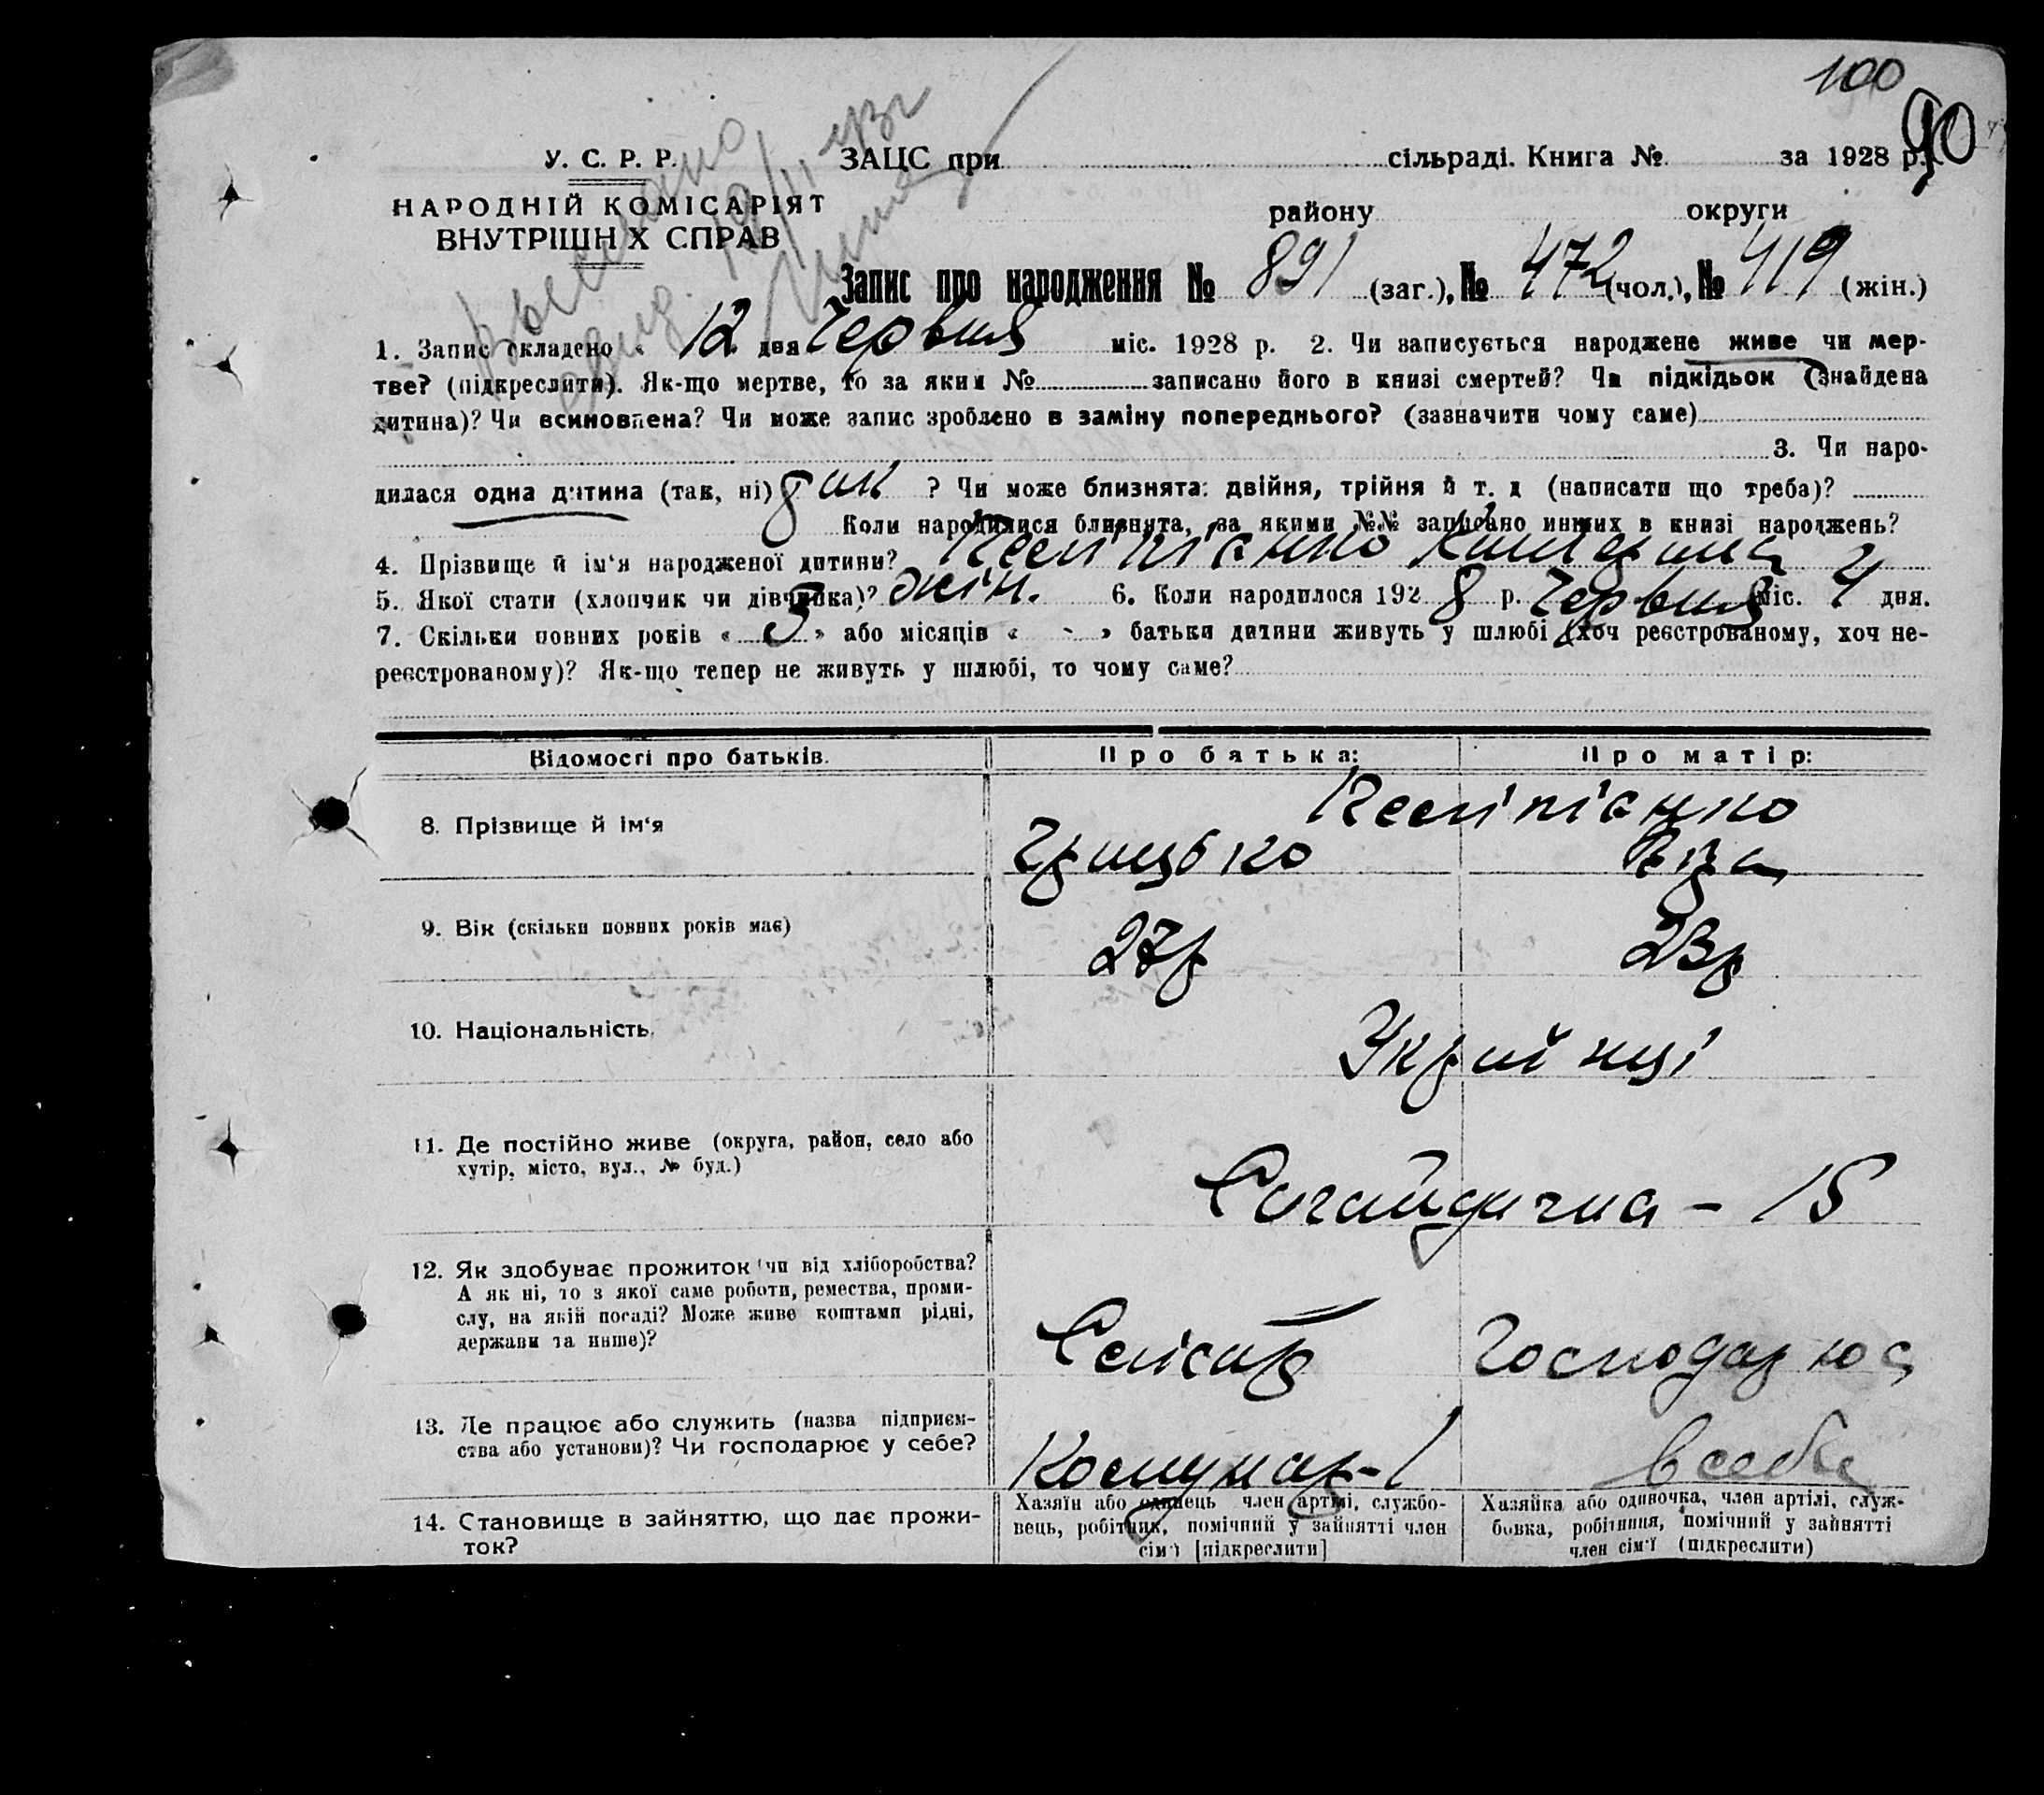 100
90
У. С. Р. Р. ЗАЦС при сільраді. Книга № за 1928 р.
НАРОДНІЙ КОМІСАРІЯТ району округи
ВНУТРІШН Х СПРАВ
Запис про народження № 891 (заг.), № 472 (чол.), № 419 (жін.)
1. Запис складено « 12 дня Червня міс. 1928 р. 2. Чи записується народжене живе чи мер-
тве? (підкреслити). Як-що мертве, то за яким № записано його в книзі смертей? Чи підкідьок (знайдена
дитина)? Чи всиновлена? Чи може запис зроблено в заміну попереднього? (зазначити чому саме)
3. Чи наро-
дилася одна дитина (так, ні) так ? Чи може близнята: двійня, трійня й т. д (написати що треба)?
Коли народилися близнята, за якими №№ записано инших в книзі народжень?
4. Прізвище й ім'я народженої дитини? Катерина
5. Якої стати (хлопчик чи дівчинка)? жін. 6. Коли народилося 192 8 р. Червня міс. 4 дня.
7. Скільки повних років « 5 » або місяців « - » батьки дитини живуть у шлюбі (хоч реєстрованому, хоч не-
реєстрованому)? Як-що тепер не живуть у шлюбі, то чому саме?
Відомості про батьків. Про батька: Про матір:
8. Прізвище й ім'я
Грицько
9. Вік (скільки повних років має) 27р 23р
10. Національність Украйнці
11. Де постійно живе (округа, район, село або
хутір, місто, вул., № буд.)
Сагайдачна - 15
12. Як здобуває прожиток (чи від хліборобства?
А як ні, то з якої саме роботи, ремества, проми-
слу, на якій посаді? Може живе коштами рідні,
держави та инше)?
Слюсар Господарює
13. Де працює або служить (назва підприєм-
ства або установи)? Чи господарює у себе?
Комунар-1 в себе
14. Становище в зайняттю, що дає прожи-
ток?
Хазяїн або одинець член артілі, службо-
вець, робітник, помічний у зайнятті член
сім'ї [підкреслити]
Хазяйка або одиночка, член артілі, служ-
бовка, робітниця, помічний у зайнятті
член сім'ї (підкреслити)